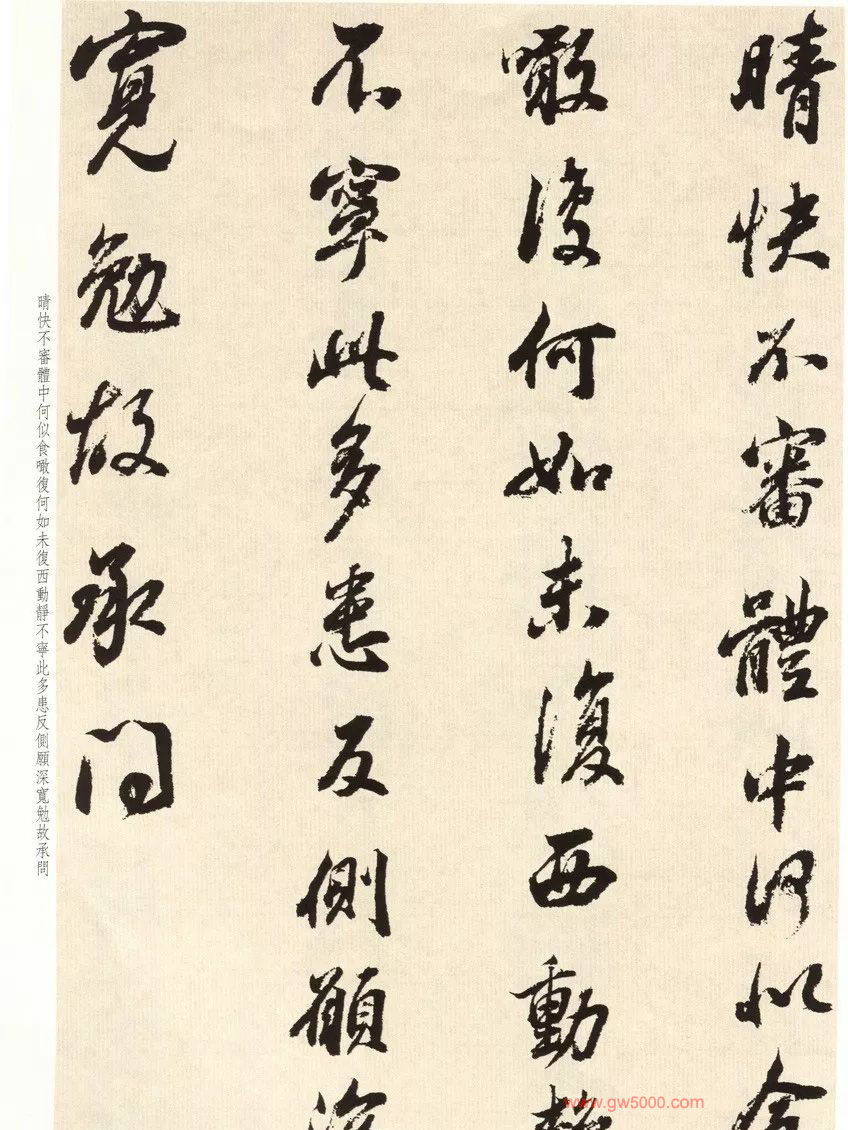 晴快不審體中何似食
噉復何如未復西動靜
不寧此多患反側願深
寬勉故承問
晴快不審體中何似食噉復何如未復西動靜不寧此多患反側願深寬勉故承問
www.gw5000.com